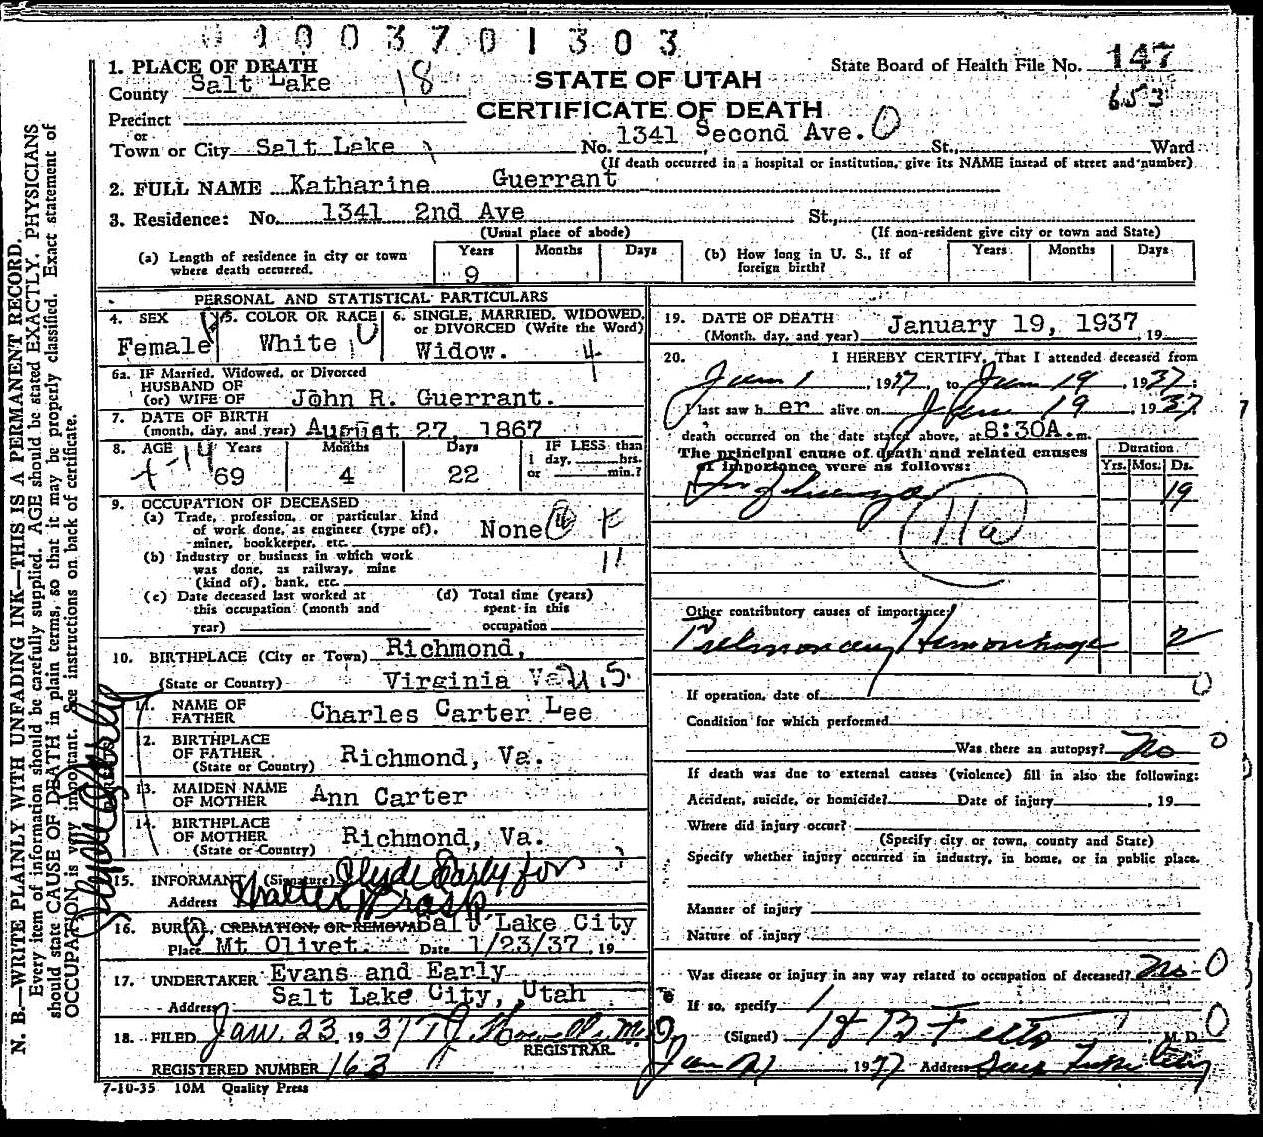 0003701303
1. PLACE OF DEATH
County Salt Lake 18
STATE OF UTAH
CERTIFICATE OF DEATH
State Board of Health File No. 147
653
Precinct
or
Town or City Salt Lake
No. 1341 Second Ave. St., Ward
(If death occurred in a hospital or institution, give its NAME insead of street and number)
2. FULL NAME Katharine Guerrant
3. Residence: No. 1341 2nd Ave St.,
(Usual place of abode) (If non-resident give city or town and State)
(a) Length of residence in city or town where death occurred. Years 9 Months Days
(b) How long in U. S., if of foreign birth? Years Months Days
PERSONAL AND STATISTICAL PARTICULARS
4. SEX Female
5. COLOR OR RACE White
6. SINGLE, MARRIED, WIDOWED, or DIVORCED (Write the Word) Widow. 4
6a. IF Married, Widowed, or Divorced
HUSBAND OF
(or) WIFE OF John R. Guerrant.
7. DATE OF BIRTH
(month, day, and year) August 27, 1867
8. AGE Years 69 Months 4 Days 22
IF LESS than
1 day, hrs.
or min.?
9. OCCUPATION OF DECEASED
(a) Trade, profession, or particular kind
of work done, as engineer (type of),
miner, bookkeeper, etc. None
(b) Industry or business in which work
was done, as railway, mine
(kind of), bank, etc.
(c) Date deceased last worked at
this occupation (month and
year)
(d) Total time (years)
spent in this
occupation
10. BIRTHPLACE (City or Town) Richmond,
(State or Country) Virginia Va U.S.
11. NAME OF
FATHER Charles Carter Lee
12. BIRTHPLACE
OF FATHER
(State or Country) Richmond, Va.
13. MAIDEN NAME
OF MOTHER Ann Carter
14. BIRTHPLACE
OF MOTHER
(State or Country) Richmond, Va.
15. INFORMANT (Signature) Clyde Early for
Address Walter
16. BURIAL, CREMATION, OR REMOVAL Salt Lake City
Place Mt Olivet. Date 1/23/37, 19
17. UNDERTAKER Evans and Early
Address Salt Lake City, Utah
18. FILED Jan. 23, 1937
REGISTRAR
REGISTERED NUMBER 163
7-10-35 10M Quality Press
19. DATE OF DEATH
(Month, day, and year) January 19, 1937, 19
20. I HEREBY CERTIFY, That I attended deceased from
Jan 1, 1937, to Jan 19, 1937;
I last saw h er alive on Jan 19, 1937
death occurred on the date stated above, at 8:30A. m.
The principal cause of death and related causes
of importance were as follows:
Duration
Yrs. Mos. Ds.
Influenza 19
11a
Other contributory causes of importance:
Pulmonary Hemorrhage 2
If operation, date of
Condition for which performed
Was there an autopsy? No
If death was due to external causes (violence) fill in also the following:
Accident, suicide, or homicide? Date of injury, 19
Where did injury occur?
(Specify city or town, county and State)
Specify whether injury occurred in industry, in home, or in public place.
Manner of injury
Nature of injury
Was disease or injury in any way related to occupation of deceased? No
If so, specify
(Signed) M. D.
Address
N. B.—WRITE PLAINLY WITH UNFADING INK—THIS IS A PERMANENT RECORD.
Every item of information should be carefully supplied. AGE should be stated EXACTLY. PHYSICIANS
should state CAUSE OF DEATH in plain terms, so that it may be properly classified. Exact statement of
OCCUPATION is very important. See instructions on back of certificate.